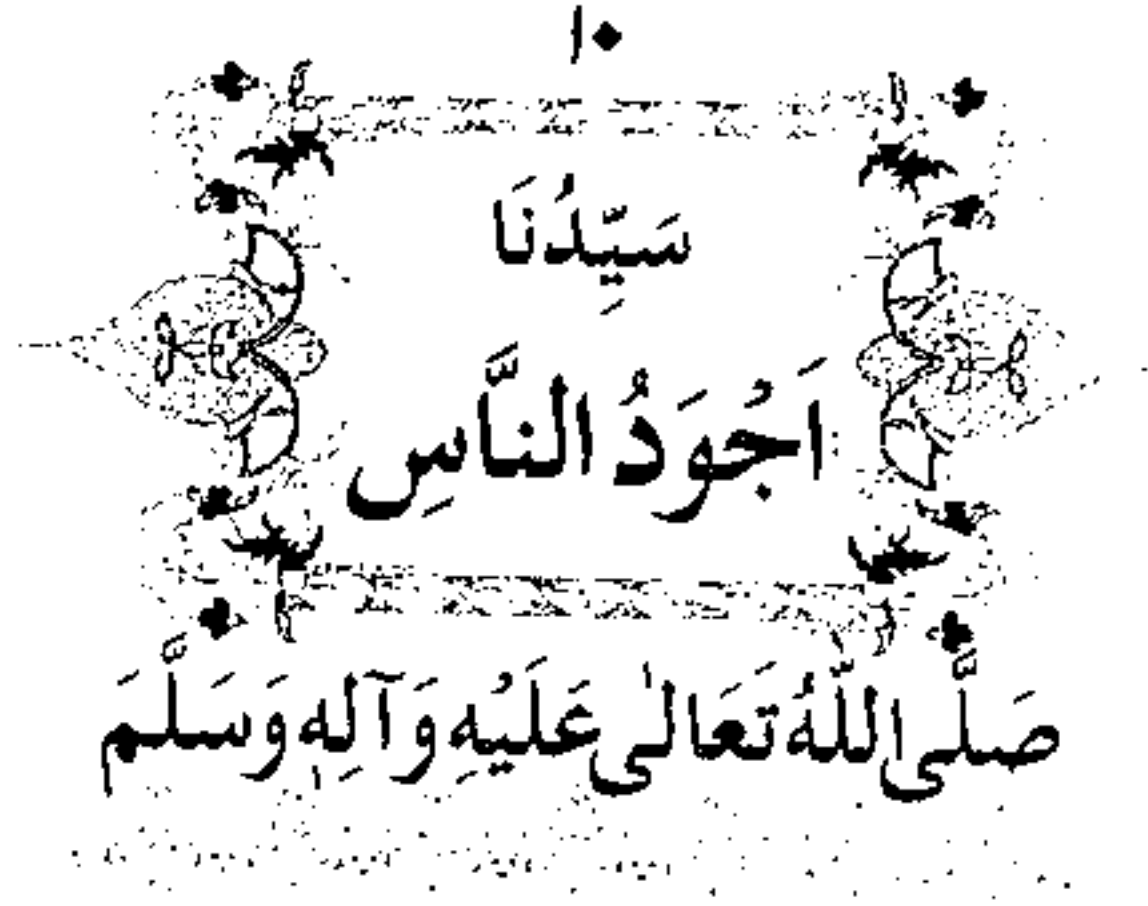 ١٠
سَيِّدُنَا
اَجُوَدُ النَّاسِ
صَلَّى اللّٰهُ تَعَالٰى عَلَيْهِ وَآلِهٖ وَسَلَّمَ